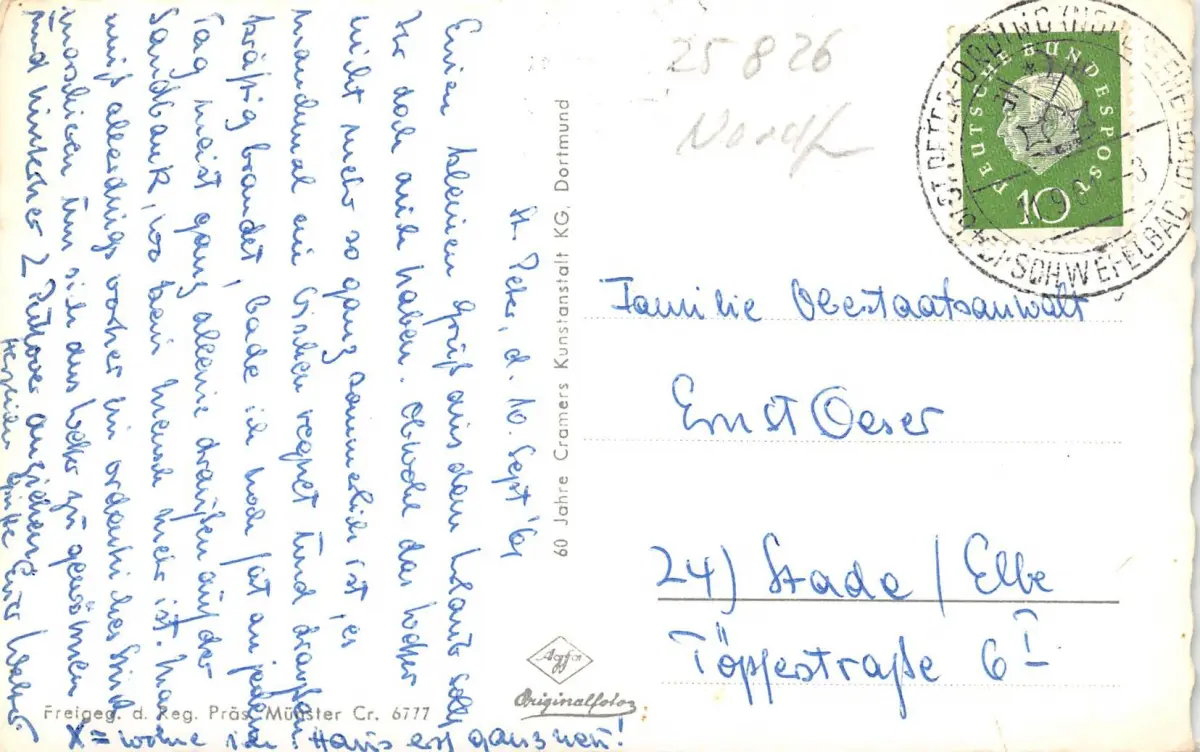 St. Peter, d. 10. Sept '61
Einen kleinen Gruß aus dem Urlaub sollt
Ihr doch auch haben. Obwohl das Wetter
nicht mehr so ganz sommerlich ist, es
manchmal ein bischen regnet und draußen
kräftig brandet, bade ich noch fast an jedem
Tag meist ganz alleine draußen auf der
Sandbank, wo kein Mensch mehr ist. Man
muß allerdings vorher ein ordentliches Stück
marschieren um sich an das Wetter zu gewöhnen
und hinterher 2 Pullover anziehen!
Herzliche Grüße Euer Walter
X = wohne ich! Haus erst ganz neu!
Freigeg. d. Reg. Präs. Münster Cr. 6777
60 Jahre Cramers Kunstanstalt KG, Dortmund
Agfa
Originalfoto
25 8 26
DEUTSCHE BUNDESPOST
10
ST. PETER-ORDING (NORDSEEHEILBAD)
SCHWEFELBAD
Familie Oberstaatsanwalt
Ernst Oeser
24) Stade / Elbe
Töpferstraße 6 I